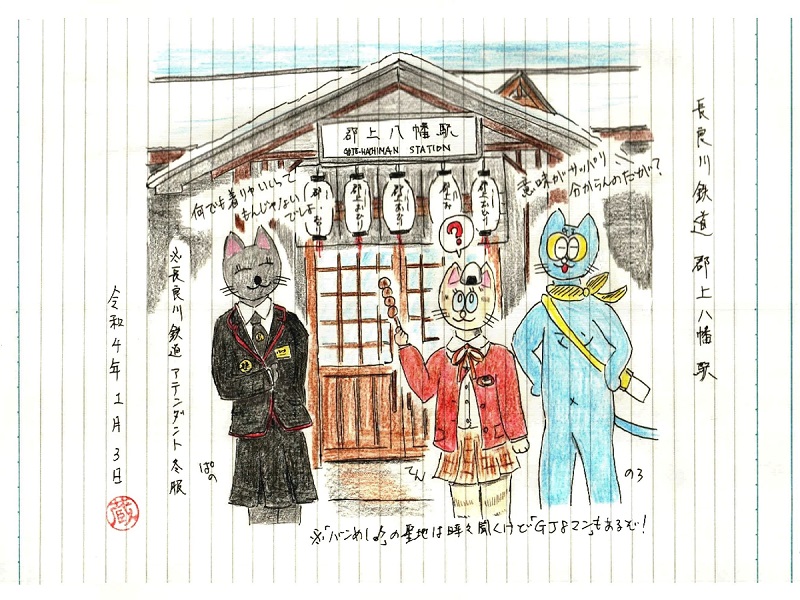 長良川鉄道 郡上八幡駅
郡上八幡駅
GUJO-HACHIMAN STATION
意味がサッパリ
分からんのだが?
何でも着りゃいいって
もんじゃない
でしょ
郡上おどり
郡上おどり
郡上おどり
郡上おどり
郡上おどり
?
※長良川鉄道 アテンダント 冬服
ぱの
てん
のろ
※「バンめし♪」の聖地は時々聞くけど「GJ8マン」もあるぞ!
令和4年1月3日
蔵